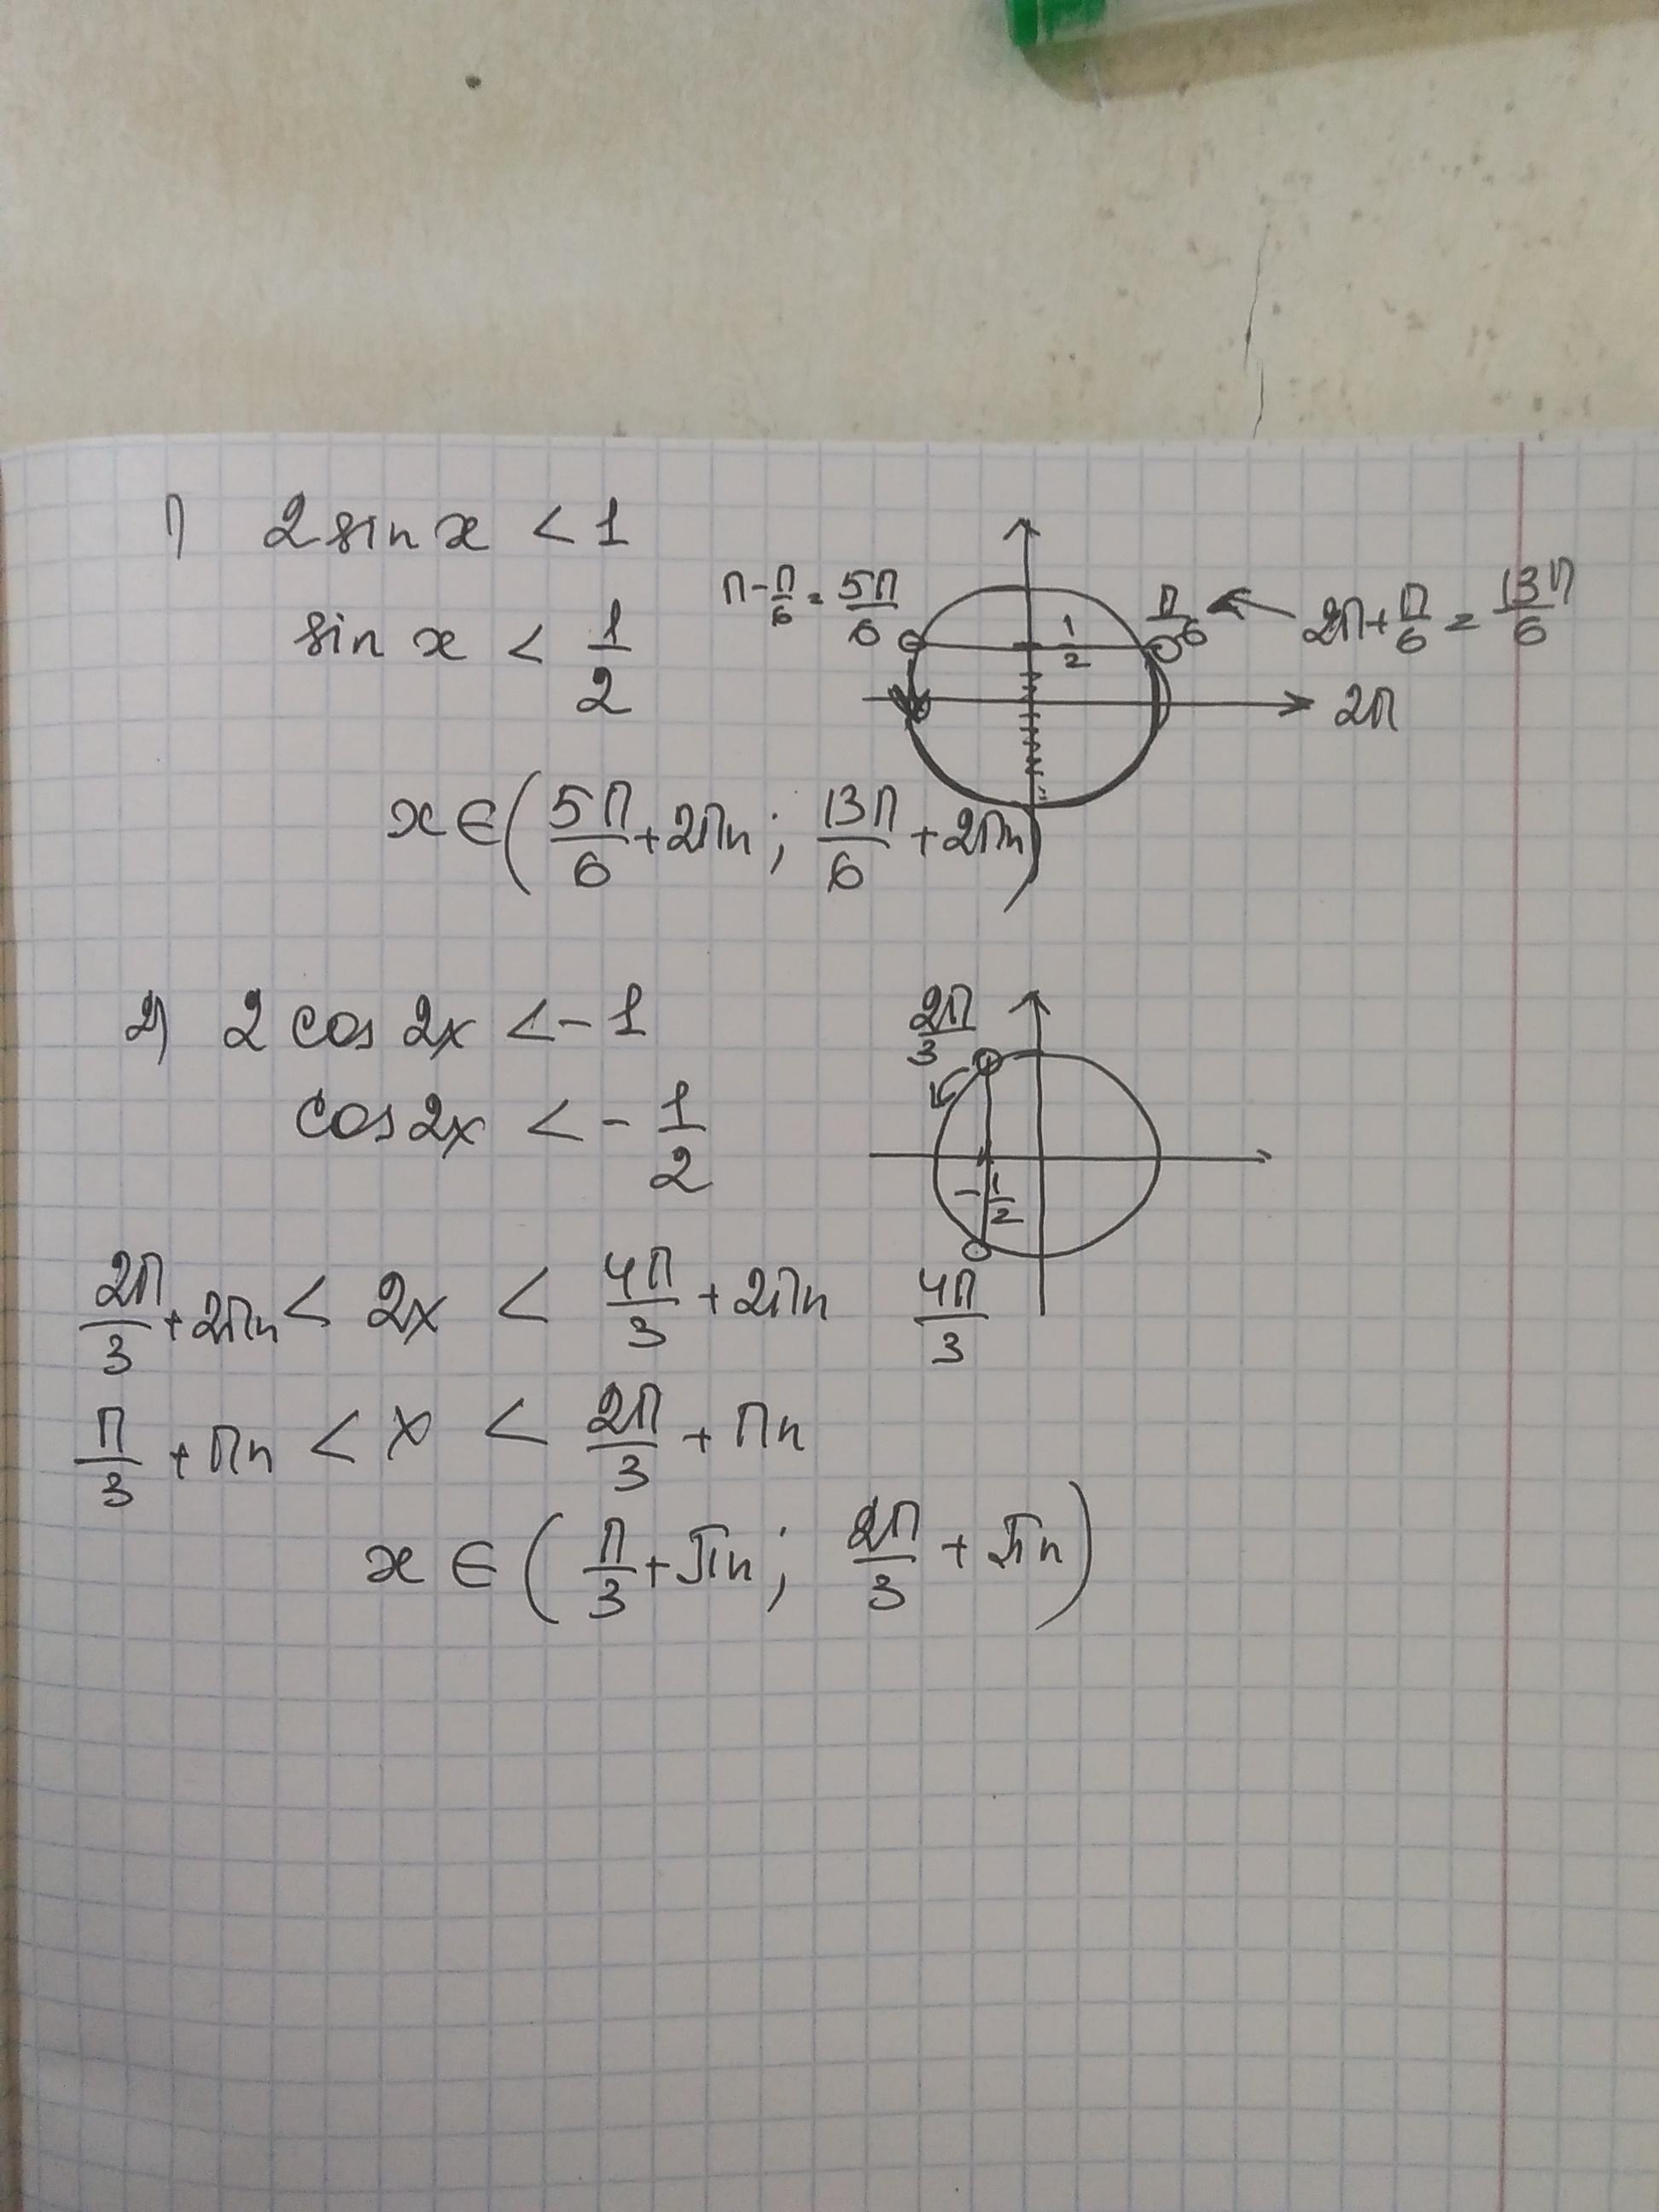 1) 2 sin x < 1
sin x < 1/2
π - π/6 = 5π/6
1/2
π/6
2π + π/6 = 13π/6
2π
x ∈ (5π/6 + 2πn; 13π/6 + 2πn)
2) 2 cos 2x < -1
cos 2x < - 1/2
2π/3
- 1/2
4π/3
2π/3 + 2πn < 2x < 4π/3 + 2πn
π/3 + πn < x < 2π/3 + πn
x ∈ (π/3 + πn; 2π/3 + πn)